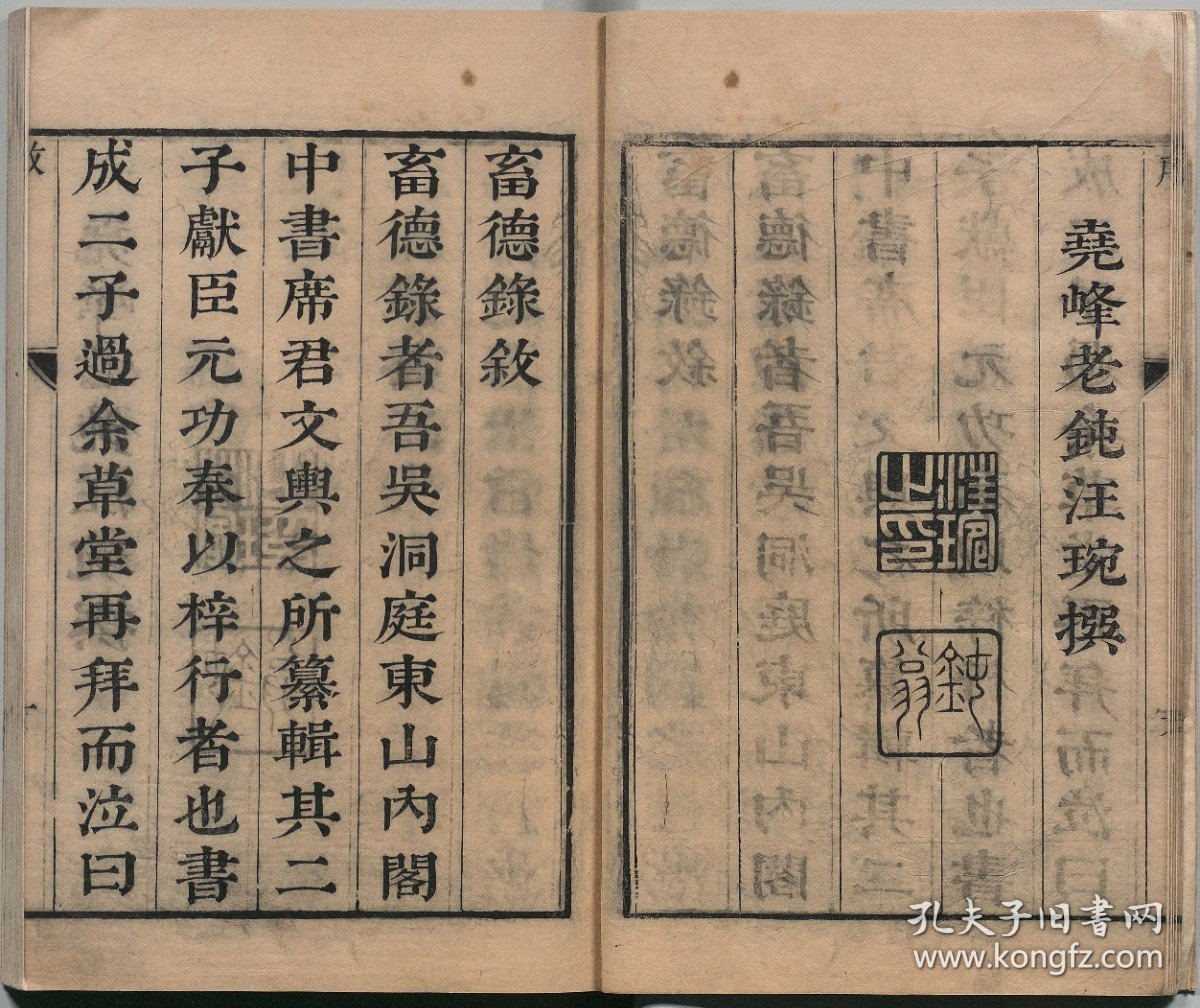 堯峰老鈍汪琬撰
汪琬之印
鈍翁
畜德錄敘
畜德錄者吾吳洞庭東山內閣
中書席君文輿之所纂輯其二
子獻臣元功奉以梓行者也書
成二子過余草堂再拜而泣曰
孔夫子旧書网
www.kongfz.com